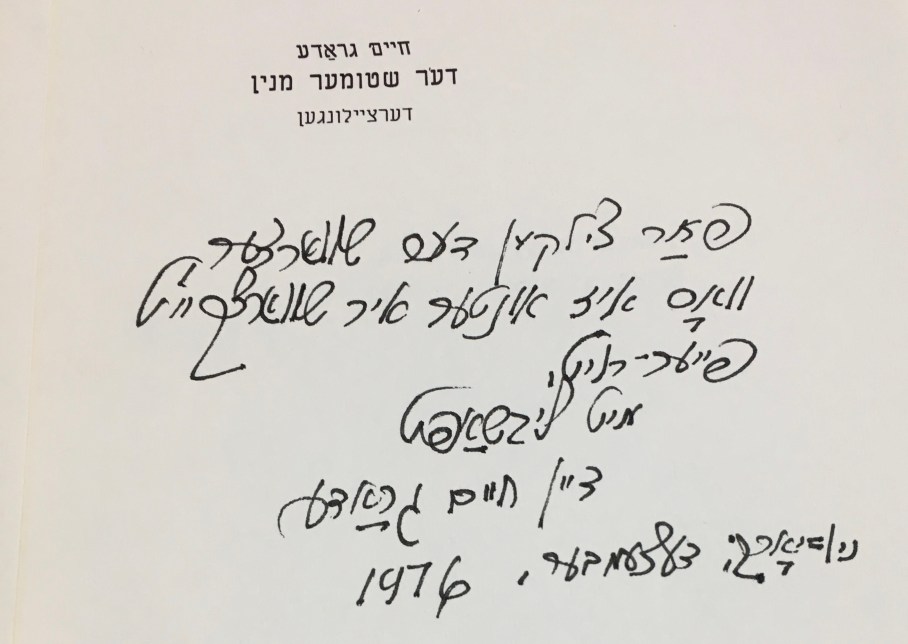 חיים גראַדע
דער שטומער מנין
דערציילונגען
פֿאַר צילקען דער שוואַרצער
וואָס איז אונטער איר שוואַרצקייט
פייער-רויט,
מיט ליבשאַפט
דיין חיים גראַדע
ניו=יאָרק, דעצעמבער, 1976